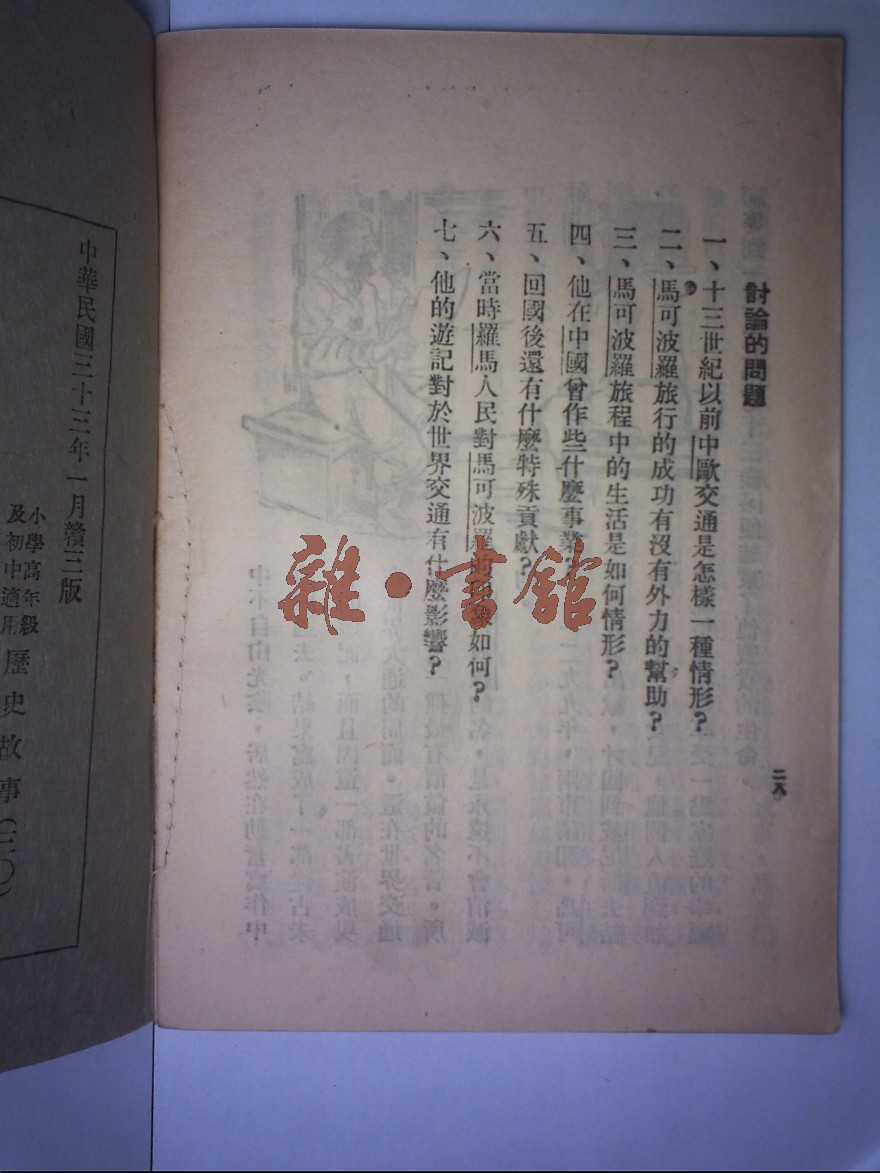 討論的問題
一、十三世紀以前中歐交通是怎樣一種情形？
二、馬可波羅旅行的成功有沒有外力的幫助？
三、馬可波羅旅程中的生活是如何情形？
四、他在中國曾作些什麼事業？
五、回國後還有什麼特殊貢獻？
六、當時羅馬人民對馬可波羅的印象如何？
七、他的遊記對於世界交通有什麼影響？
二八
雜·書館
中華民國三十三年一月贛三版
小學高年級
及初中適用
歷史故事（三〇）